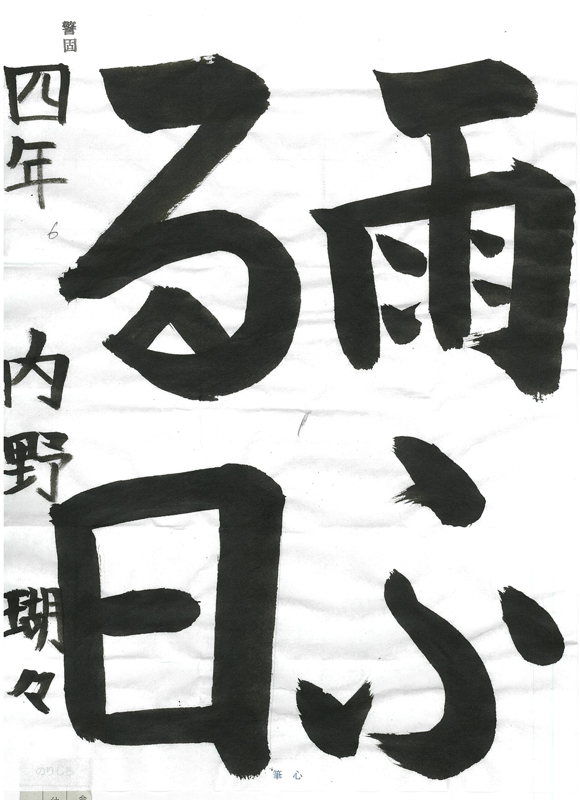 雨ふ
る日
四年 内野 瑚々
6
警固
筆心
のりしろ